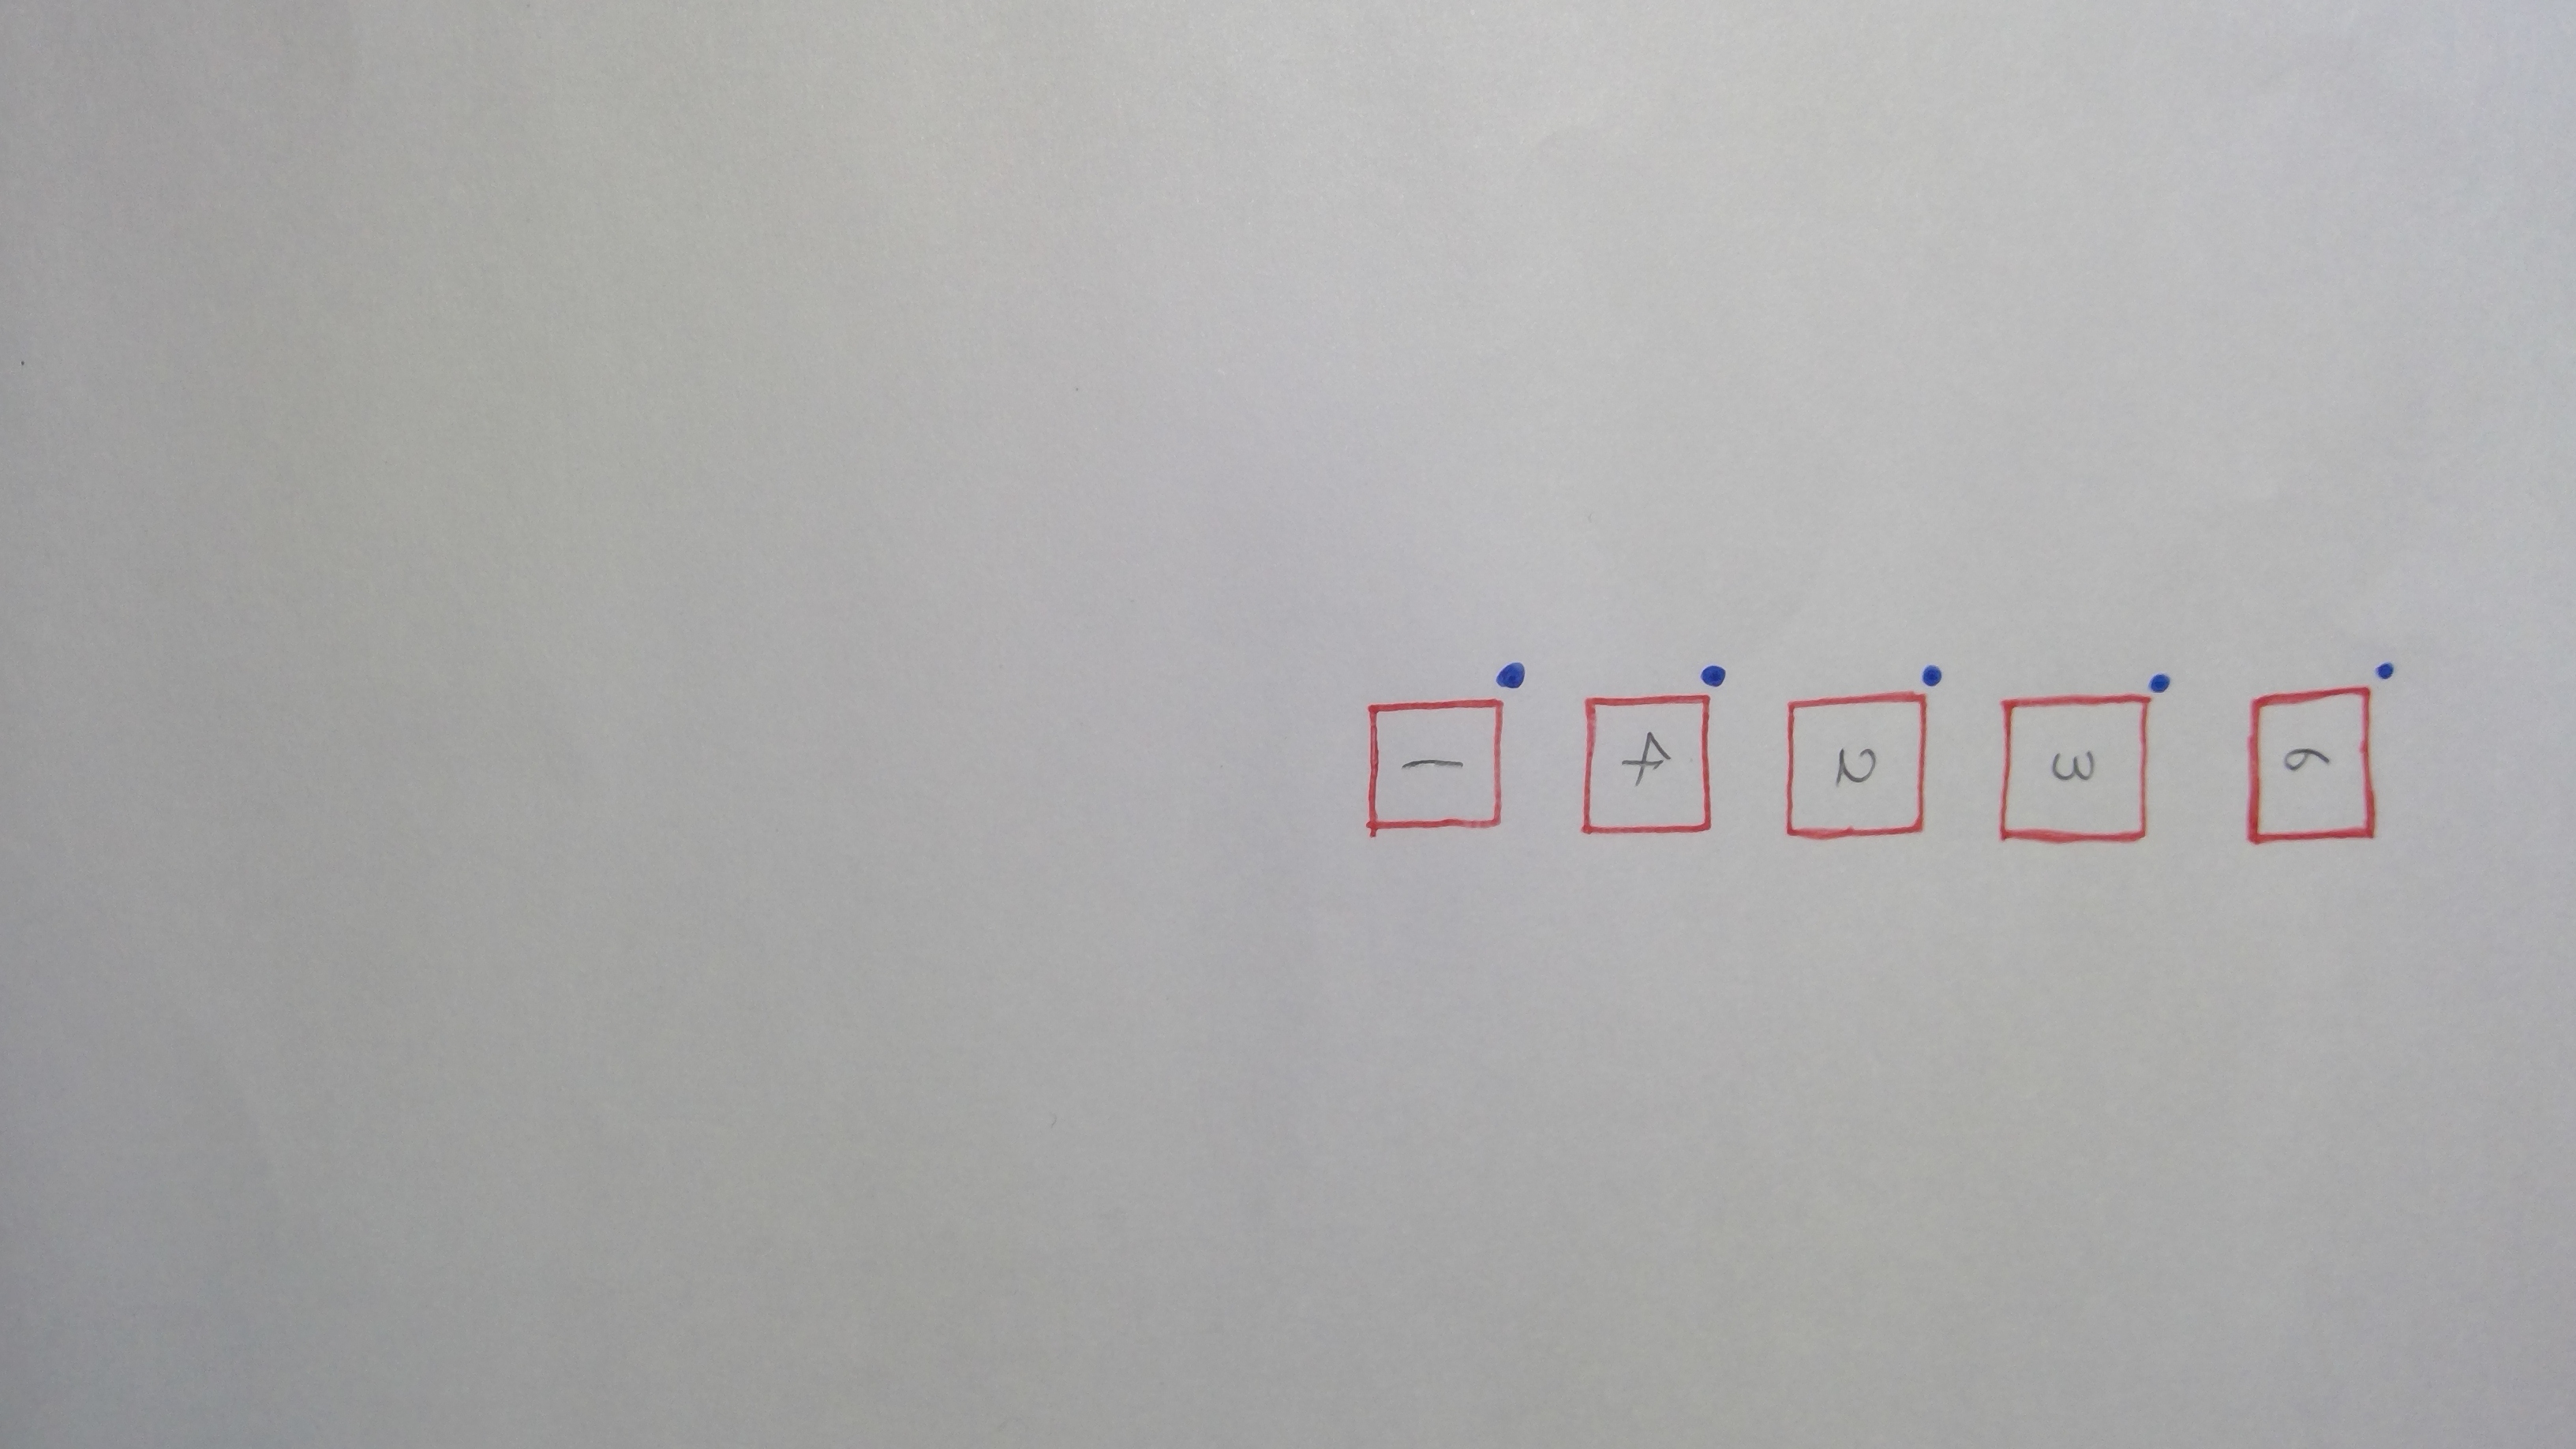 6
3
2
4
1